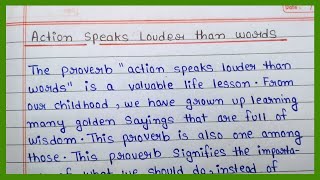 Date :
Action speaks louder than words
The proverb "action speaks louder than
words" is a valuable life lesson. From
our childhood, we have grown up learning
many golden sayings that are full of
wisdom. This proverb is also one among
those. This proverb signifies the importa-
of what we should do, instead of